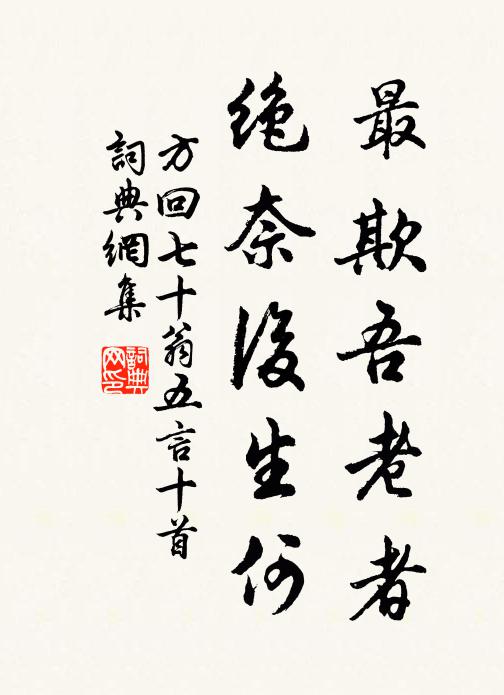 最欺吾老者
绝奈後生何
方回七十翁五言十首
詞典網集
詞典网印